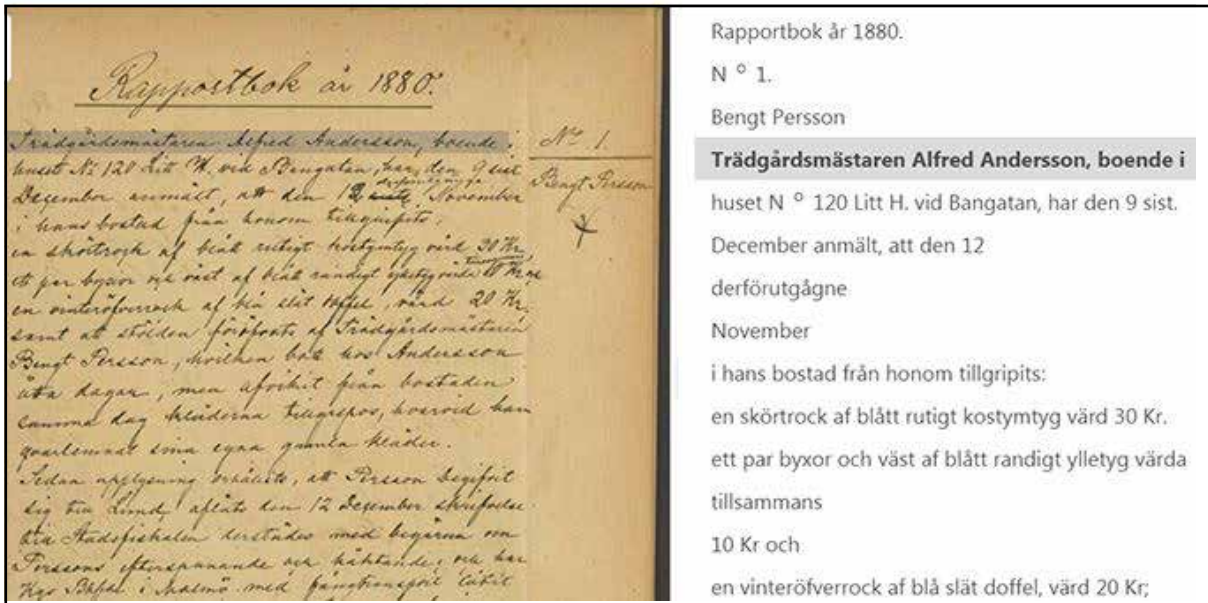 Rapportbok år 1880.
Trädgårdsmästaren Alfred Andersson, boende i
huset No 120 Litt H. vid Bangatan, har den 9 sist.
derförutgågne
December anmält, att den 12 November
i hans bostad från honom tillgripits:
en skörtrock af blått rutigt kostymtyg värd 30 Kr.
tillsammans
ett par byxor och väst af blått randigt ylletyg värda 10 Kr och
en vinteröfverrock af blå slät doffel, värd 20 Kr;
samt att stölden föröfvats af Trädgårdsmästaren
Bengt Persson, hvilken bott hos Andersson
åtta dagar, men afvikit från bostaden
samma dag kläderna tillgrepos, hvarvid han
qvarlemnat sina egna gamla kläder.
Sedan upplysning erhållits, att Persson begifvit
sig till Lund, aflåts den 12 December skrifvelse
till Stadsfiskalen derstädes med begäran om
Perssons efterspanande och häktande; och har
i Malmö med fångtransport låtit
No 1.
Bengt Persson
Rapportbok år 1880.
N o 1.
Bengt Persson
Trädgårdsmästaren Alfred Andersson, boende i
huset N o 120 Litt H. vid Bangatan, har den 9 sist.
December anmält, att den 12
derförutgågne
November
i hans bostad från honom tillgripits:
en skörtrock af blått rutigt kostymtyg värd 30 Kr.
ett par byxor och väst af blått randigt ylletyg värda
tillsammans
10 Kr och
en vinteröfverrock af blå slät doffel, värd 20 Kr;